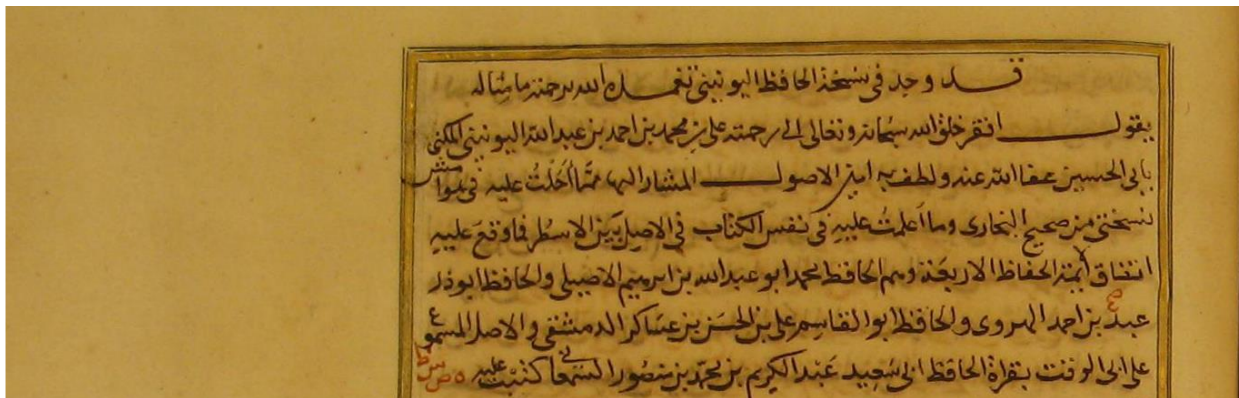 قد وجد فى نسخة الحافظ اليونينى تغمده الله برحمته مامثاله
يقول افقر خلق الله سبحانه وتعالى الى رحمته على بن محمد بن احمد بن عبد الله اليونينى المكنى
بابى الحسين عفا الله عنه ولطف به ان الاصول المشار اليها مما احلت عليه فى حواشى
نسختى من صحيح البخارى وما اعلمت عليه فى نفس الكتاب فى الاصل بين الاسطر فما وقع عليه
اتفاق أيمة الحفاظ الاربعة وهم الحافظ محمد ابو عبد الله بن ابرهيم الاصيلى والحافظ ابو ذر
عبد بن احمد الهروى والحافظ ابو القاسم على بن الحسن بن عساكر الدمشقى والاصل المسموع
على ابى الوقت بقراة الحافظ ابى سعيد عبد الكريم بن محمد بن منصور السمعانى كتبت عليه ه ص س ط